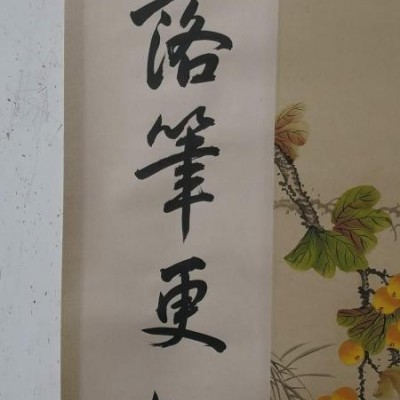 落筆更